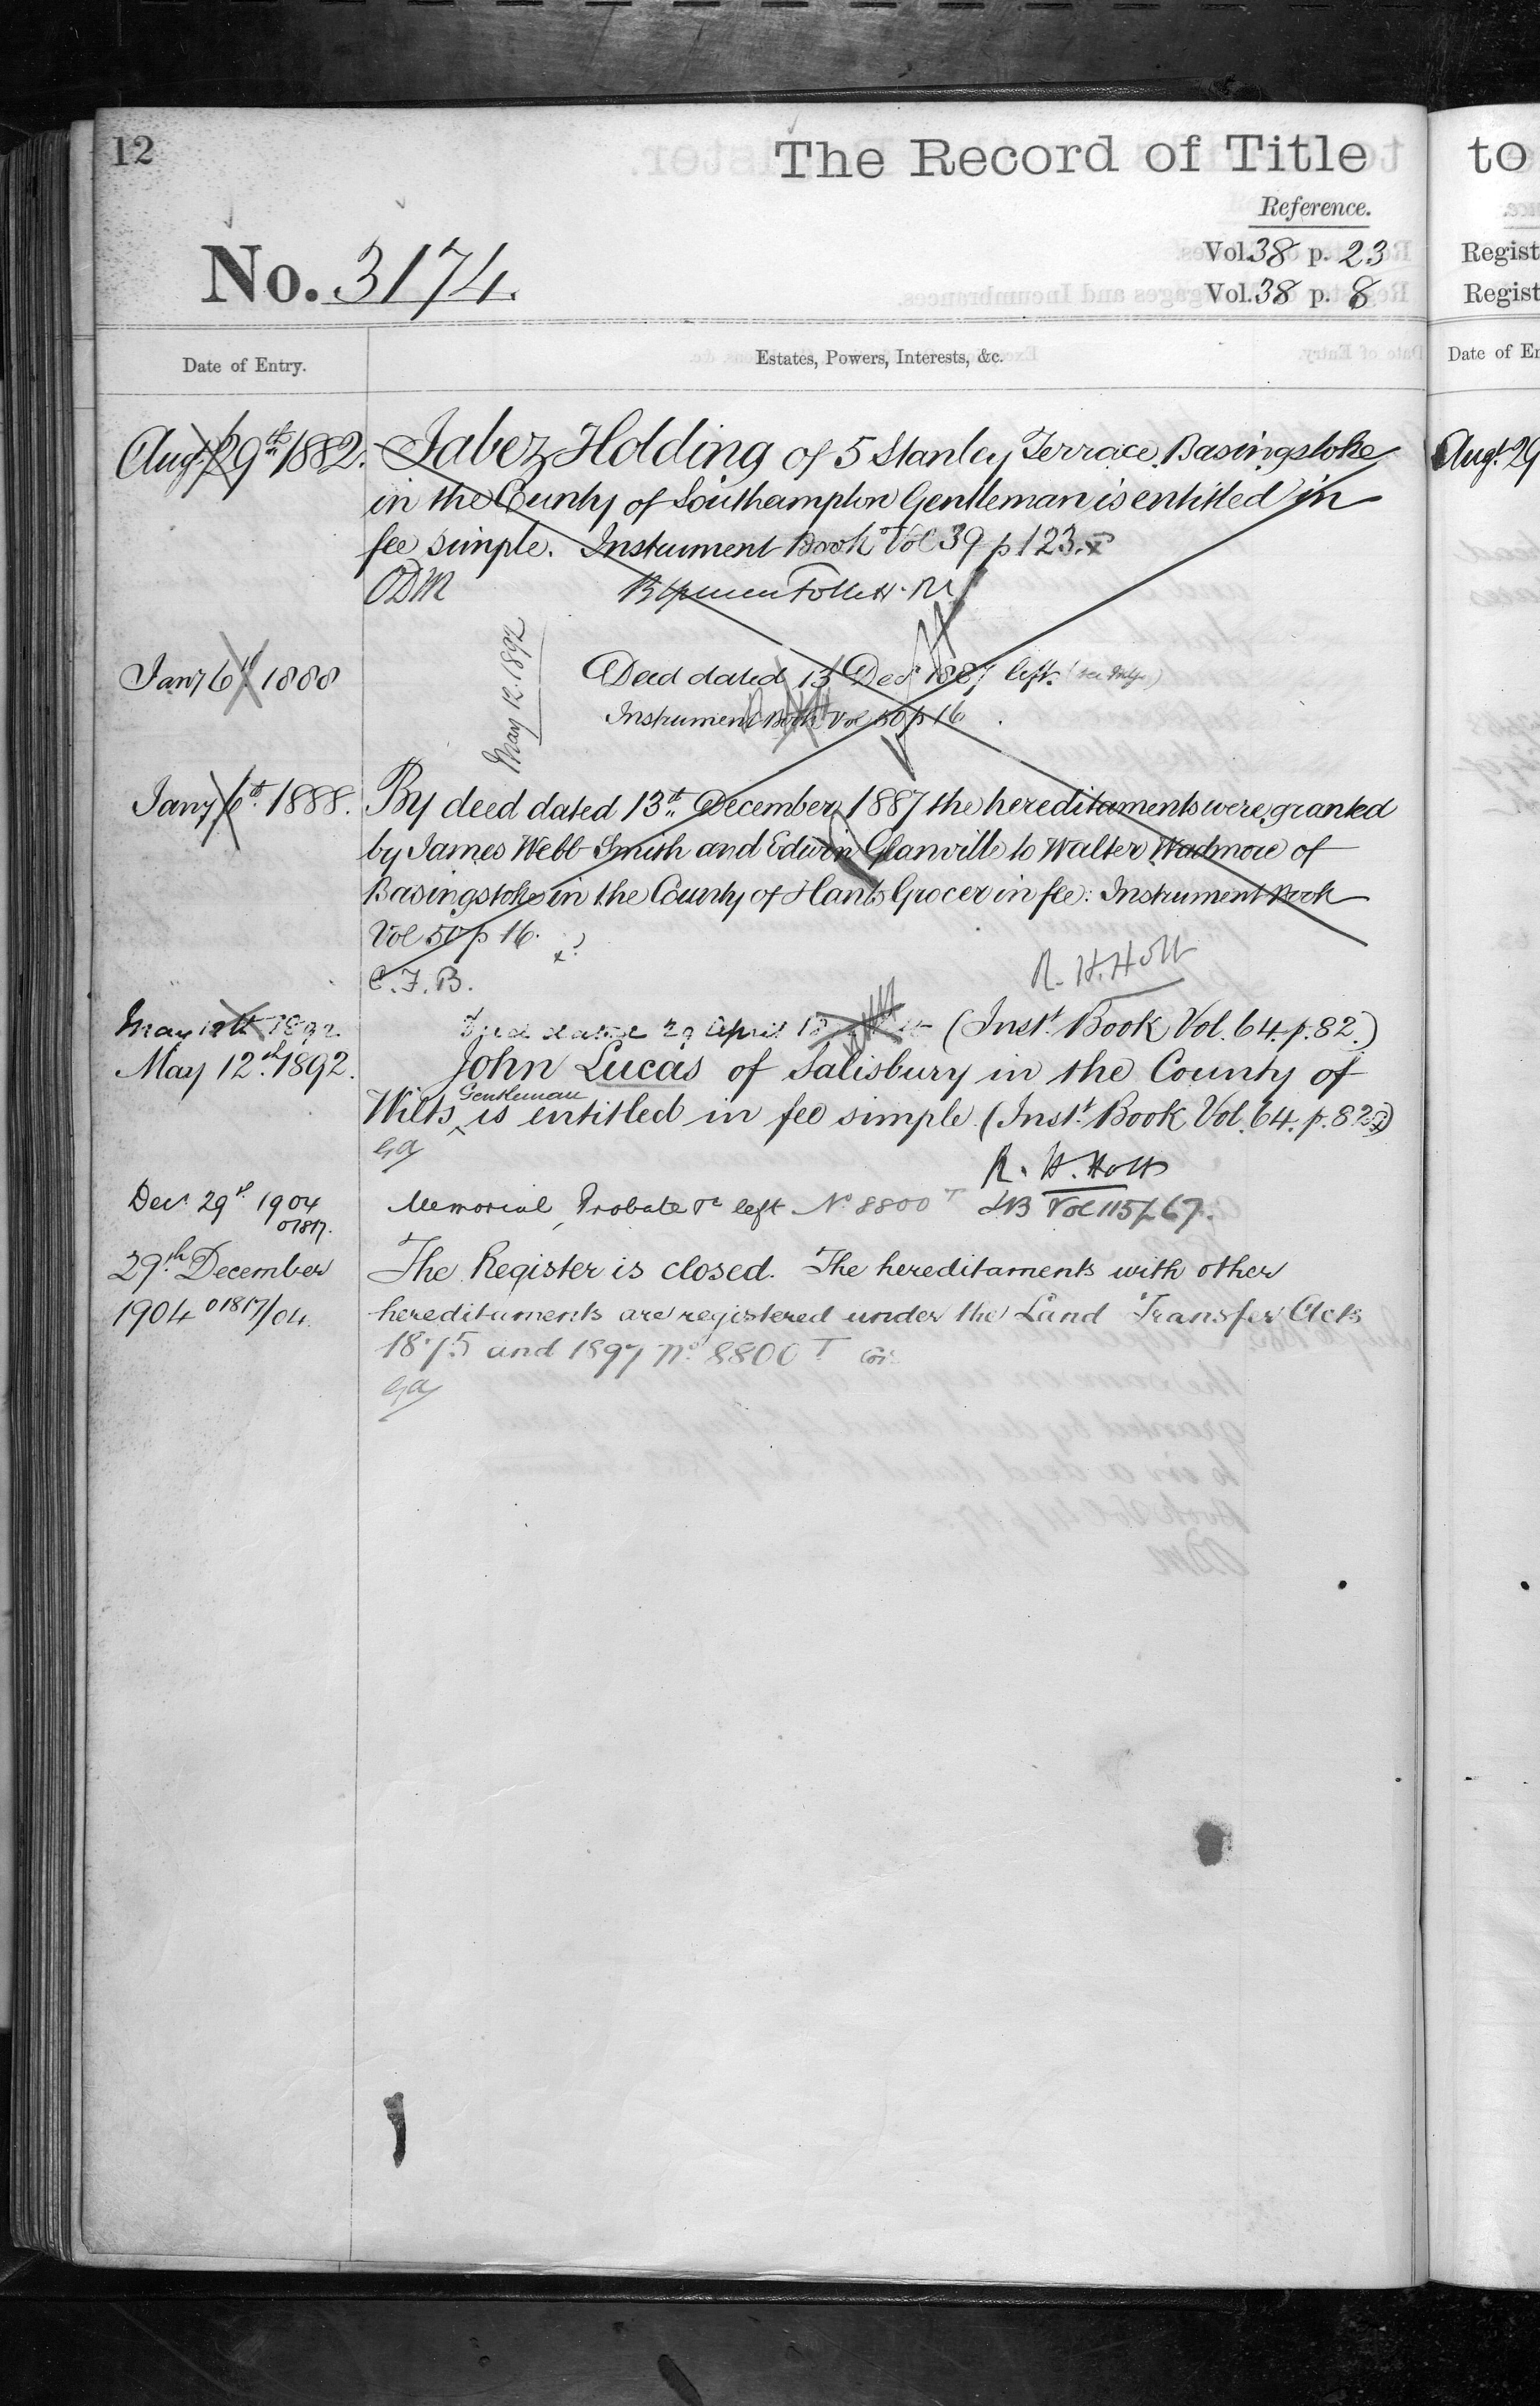 12
The Record of Title
to
Reference.
Vol. 38 p. 23
Regist
No. 3174.
Vol. 38 p. 8
Regist
Date of Entry.
Estates, Powers, Interests, &c.
Date of En
Augt. 29th 1882.
Jabez Holding of 5 Stanley Terrace Basingstoke
Augt. 29
in the County of Southampton Gentleman is entitled in
fee simple. Instrument Book Vol 39 p 123.
ODM
Follett
Jany 6th 1888
Deed dated 13 Decr 1887 left.
Instrument Book Vol 50 p 16.
May 12. 1892
Jany 6th. 1888.
By deed dated 13th. December 1887 the hereditaments were granted
by James Webb Smith and Edwin Glanville to Walter Wadmore of
Basingstoke in the County of Hants Grocer in fee: Instrument Book
Vol 50 p 16.
C.F.B.
R. H. Holt
May 12th 1892.
Deed dated 29 April (Inst. Book Vol. 64. p. 82.)
May 12th. 1892.
John Lucas of Salisbury in the County of
Gentleman
Wilts is entitled in fee simple (Inst. Book Vol. 64. p. 82.)
R. H. Holt
Decr 29th 1904
Memorial, Probate &c left No 8800 T I B Vol 115 p 67.
01817.
29th. December
The Register is closed. The hereditaments with other
1904 01817/04.
hereditaments are registered under the Land Transfer Acts
1875 and 1897 No. 8800 T